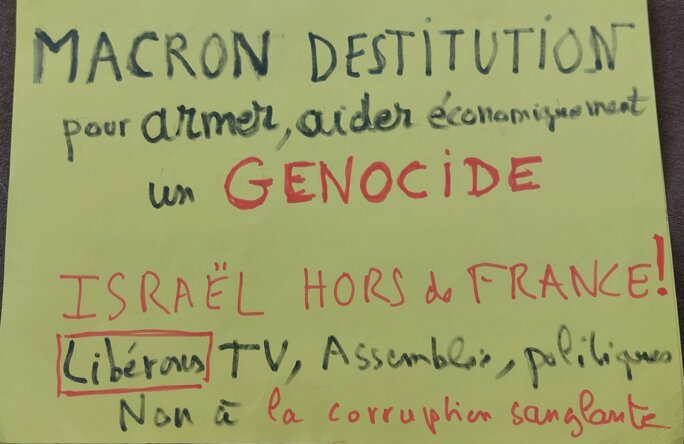 MACRON DESTITUTION
pour armer, aider économiquement
un GENOCIDE
ISRAËL HORS de FRANCE!
Libérons TV, Assemblée, politiques
Non à la corruption sanglante